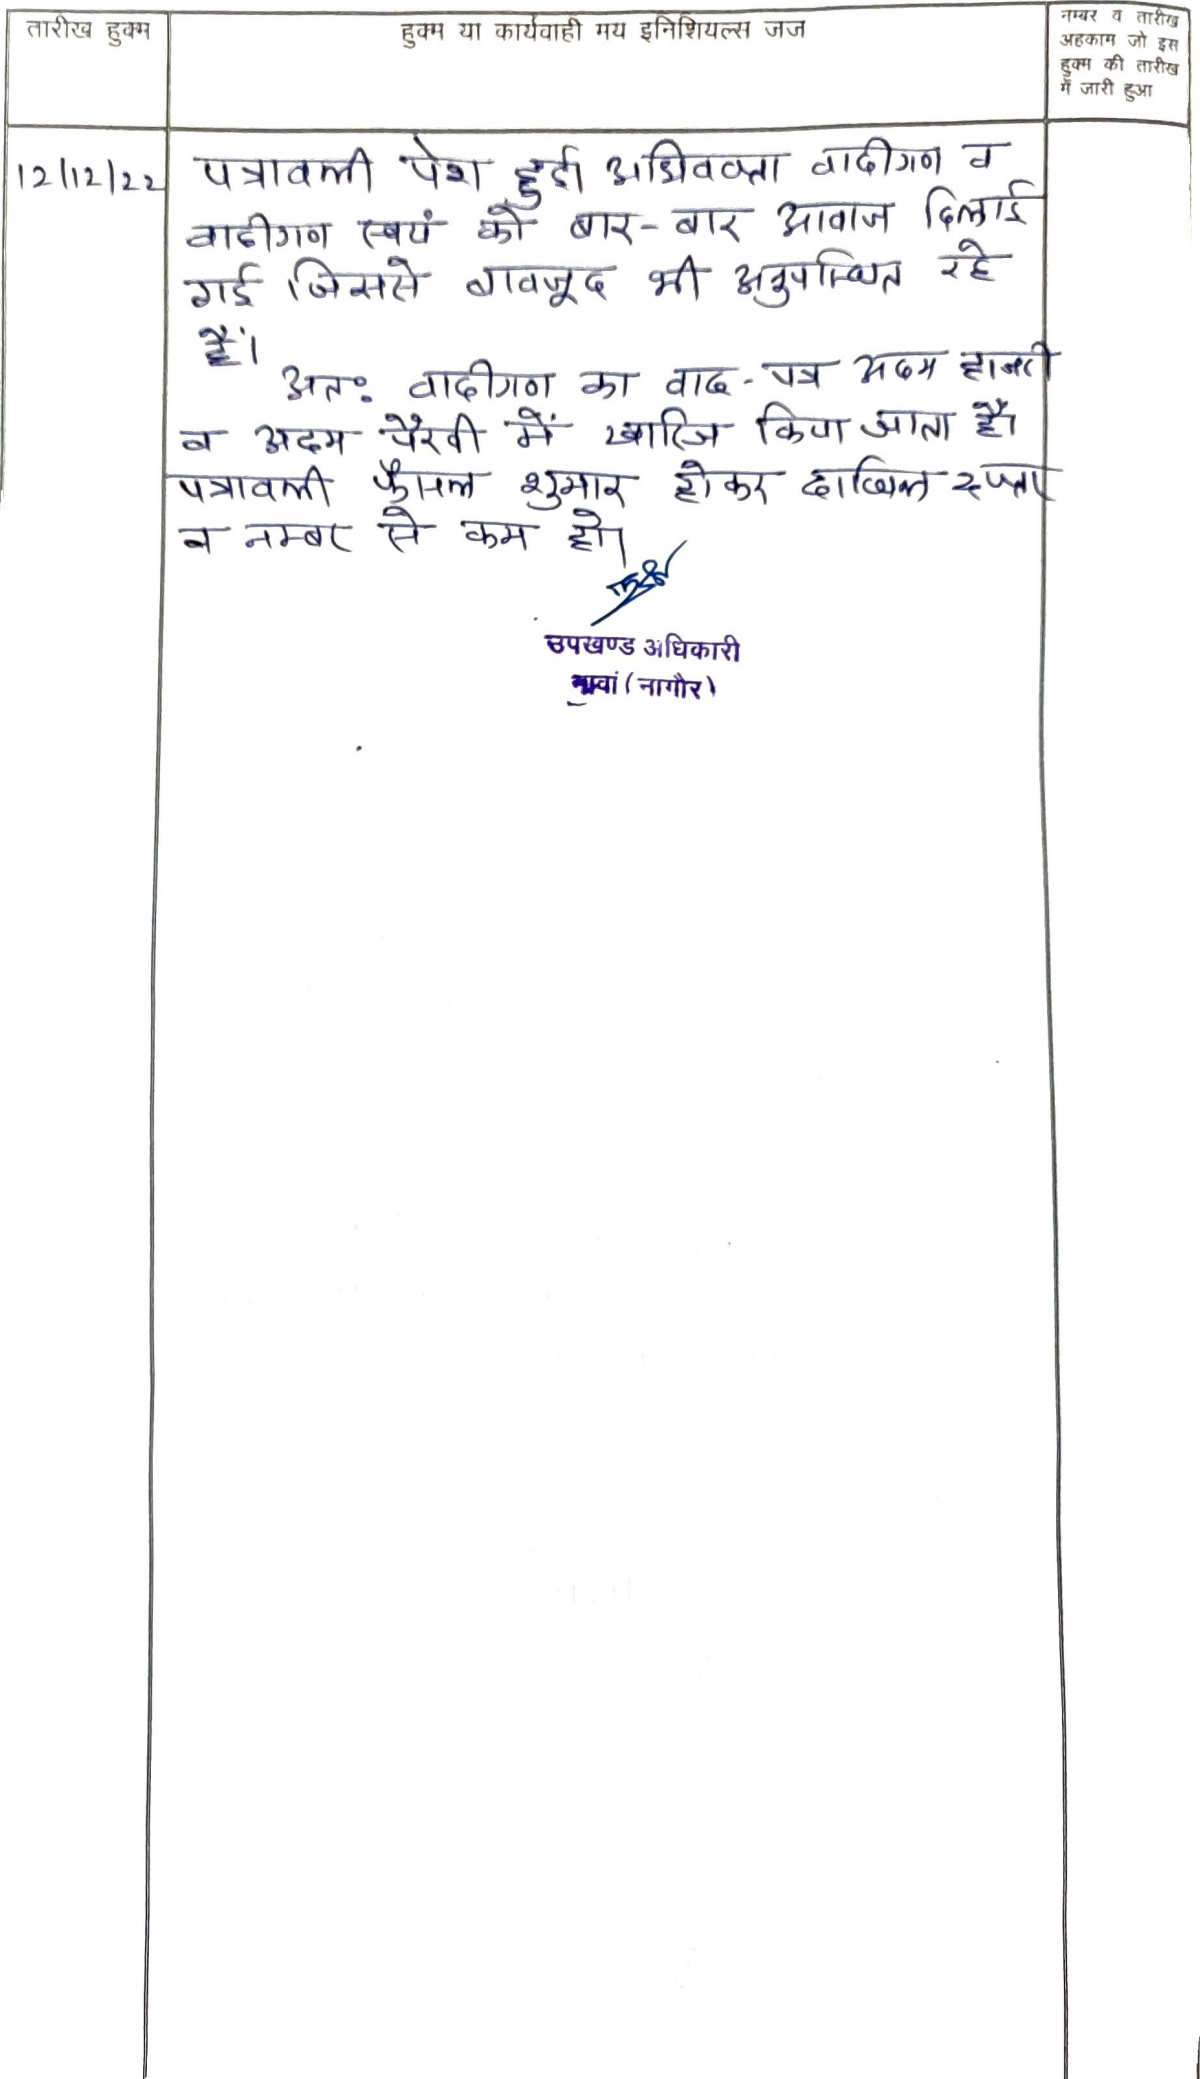 तारीख हुक्म
हुक्म या कार्यवाही मय इनिशियल्स जज
नम्बर व तारीख
अहकाम जो इस
हुक्म की तारीख
में जारी हुआ
12/12/22
पत्रावली पेश हुई। अधिवक्ता वादीगण व
वादीगण स्वयं को बार-बार आवाज दिलाई
गई जिससे बावजूद भी अनुपस्थित रहे
हैं।
अतः वादीगण का वाद-पत्र अदम हाजरी
व अदम पैरवी में खारिज किया जाता है।
पत्रावली फैसल शुमार होकर दाखिल दफ्तर
व नम्बर से कम हो।
उपखण्ड अधिकारी
नावां (नागौर)